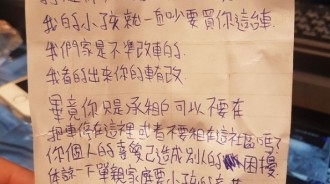 我的小孩就一直吵要買你這台車
我們家是不準改車的
我看的出來你的車有改
畢竟你只是承租戶可以不要在
把車停在這裡或者不要租在這社區嗎?
你個人的喜愛已造成別人的困擾
体諒一下單親家庭要小孩的